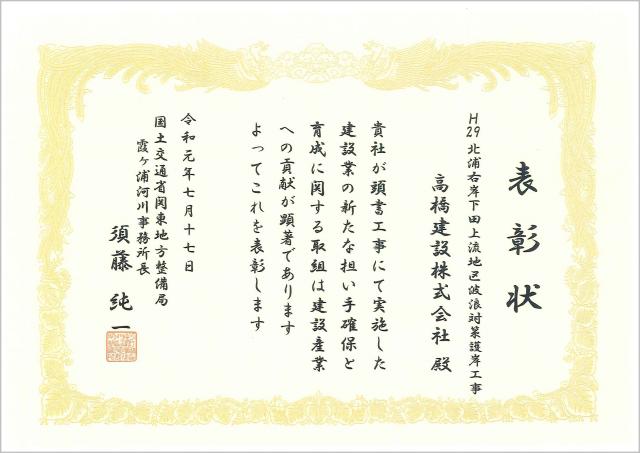 表彰状
H29北浦右岸下田上流地区波浪対策護岸工事
高橋建設株式会社 殿
貴社が頭書工事にて実施した
建設業の新たな担い手確保と
育成に関する取組は建設産業
への貢献が顕著であります
よってこれを表彰します
令和元年七月十七日
国土交通省関東地方整備局
霞ヶ浦河川事務所長
須藤純一